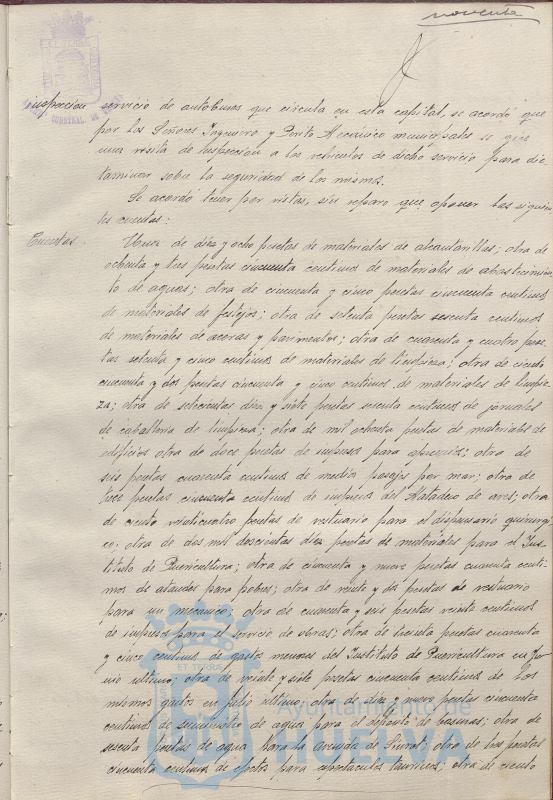 noventa
inspección servicio de autobuses que circula en esta capital, se acordó que
por los Señores Ingeniero y Perito Mecánico municipales se gire
una visita de inspección a los vehículos de dicho servicio para dic
taminar sobre la seguridad de los mismos.
Se acordó tener por vistas, sin reparo que oponer las siguien
tes cuentas:
Cuentas. Una de diez y ocho pesetas de materiales de alcantarillas; otra de
ochenta y tres pesetas cincuenta centimos de materiales de abastecimien
to de aguas; otra de cincuenta y cinco pesetas cincuenta centimos
de materiales de festejos; otra de setenta pesetas sesenta centimos
de materiales de aceras y pavimentos; otra de cuarenta y cuatro pese
tas setenta y cinco centimos de materiales de limpieza; otra de ciento
cincuenta y dos pesetas cincuenta y cinco centimos de materiales de limpie
za; otra de setecientas diez y siete pesetas sesenta centimos de jornales
de caballeria de limpieza; otra de mil ochenta pesetas de materiales de
edificios otra de doce pesetas de impresos para apremios; otra de
seis pesetas cuarenta centimos de medios pasajes por mar; otra de
doce pesetas cincuenta centimos de impresos del Matadero de aves; otra
de ciento veinticuatro pesetas de vestuario para el dispensario quirurgi
co; otra de dos mil doscientas diez pesetas de materiales para el Ins
tituto de Puericultura; otra de cincuenta y nueve pesetas cuarenta centi
mos de ataudes para pobres; otra de veinte y dos pesetas de vestuario
para un mecanico; otra de cuarenta y seis pesetas veinte centimos
de impresos para el servicio de obras; otra de treinta pesetas cuarenta
y cinco centimos de gastos menores del Instituto de Puericultura en Ju
nio ultimo; otra de veinte y siete pesetas cincuenta centimos de los
mismos gastos en julio ultimo; otra de diez y nueve pesetas cincuenta
centimos de suministro de agua para el deposito de basuras; otra de
sesenta pesetas de agua para la avenida de ; otra de tres pesetas
cincuenta centimos de efectos para espectaculos taurinos; otra de ciento
Ayuntamiento de
HUELVA